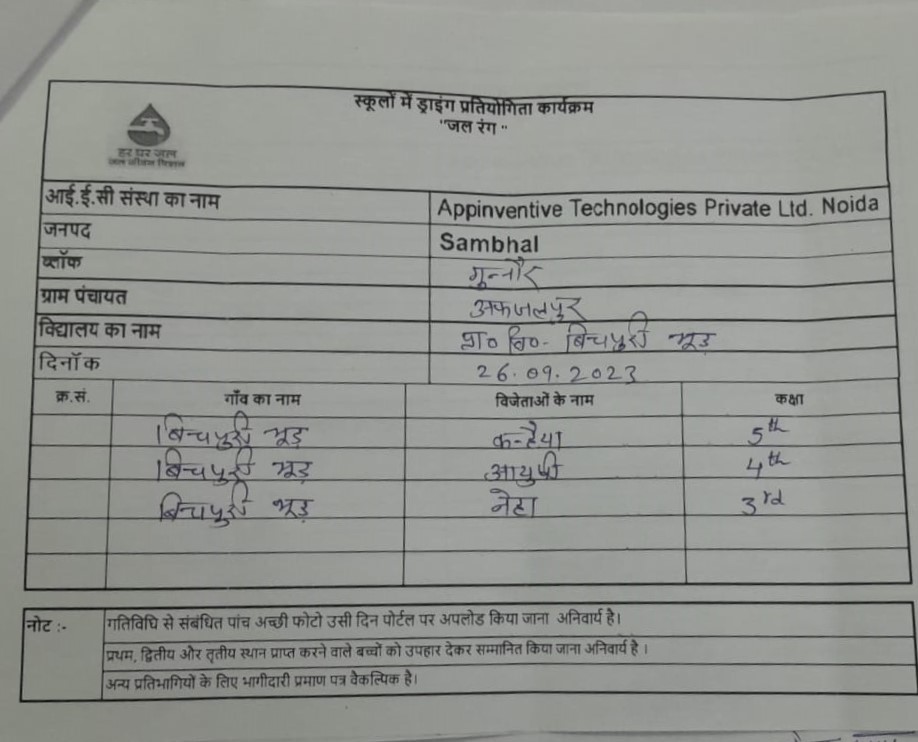 स्कूलों में ड्राइंग प्रतियोगिता कार्यक्रम
"जल रंग "
हर घर जल
जल जीवन मिशन
आई.ई.सी संस्था का नाम Appinventive Technologies Private Ltd. Noida
जनपद Sambhal
ब्लॉक गुन्नौर
ग्राम पंचायत अफजलपुर
विद्यालय का नाम प्रा० वि०- बिचपुरी भूड़
दिनॉक 26.09.2023
क्र.सं. गाँव का नाम विजेताओं के नाम कक्षा
बिचपुरी भूड़ कन्हैया 5th
बिचपुरी भूड़ 4th
बिचपुरी भूड़ नेहा 3rd
नोट :- गतिविधि से संबंधित पांच अच्छी फोटो उसी दिन पोर्टल पर अपलोड किया जाना अनिवार्य है।
प्रथम, द्वितीय और तृतीय स्थान प्राप्त करने वाले बच्चों को उपहार देकर सम्मानित किया जाना अनिवार्य है ।
अन्य प्रतिभागियों के लिए भागीदारी प्रमाण पत्र वैकल्पिक है।